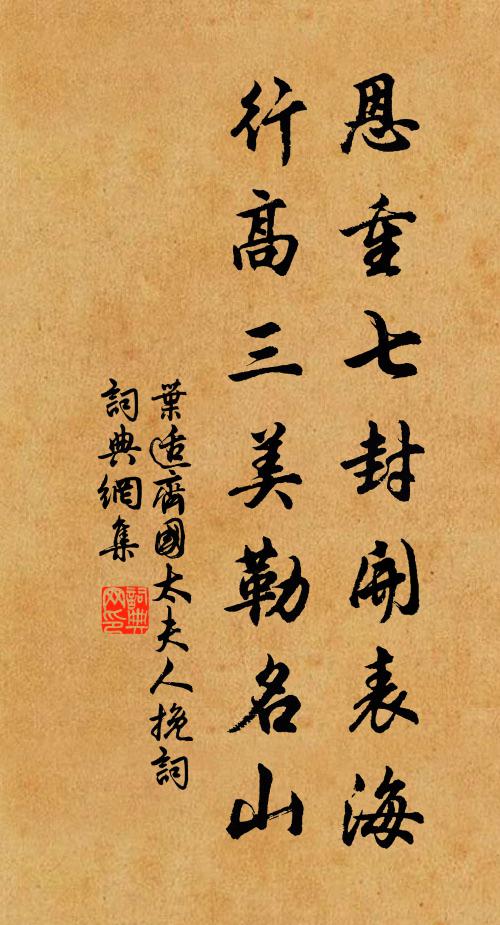 恩重七封開表海
行高三美勒名山
葉適齊國太夫人挽詞
詞典網集
詞典網印